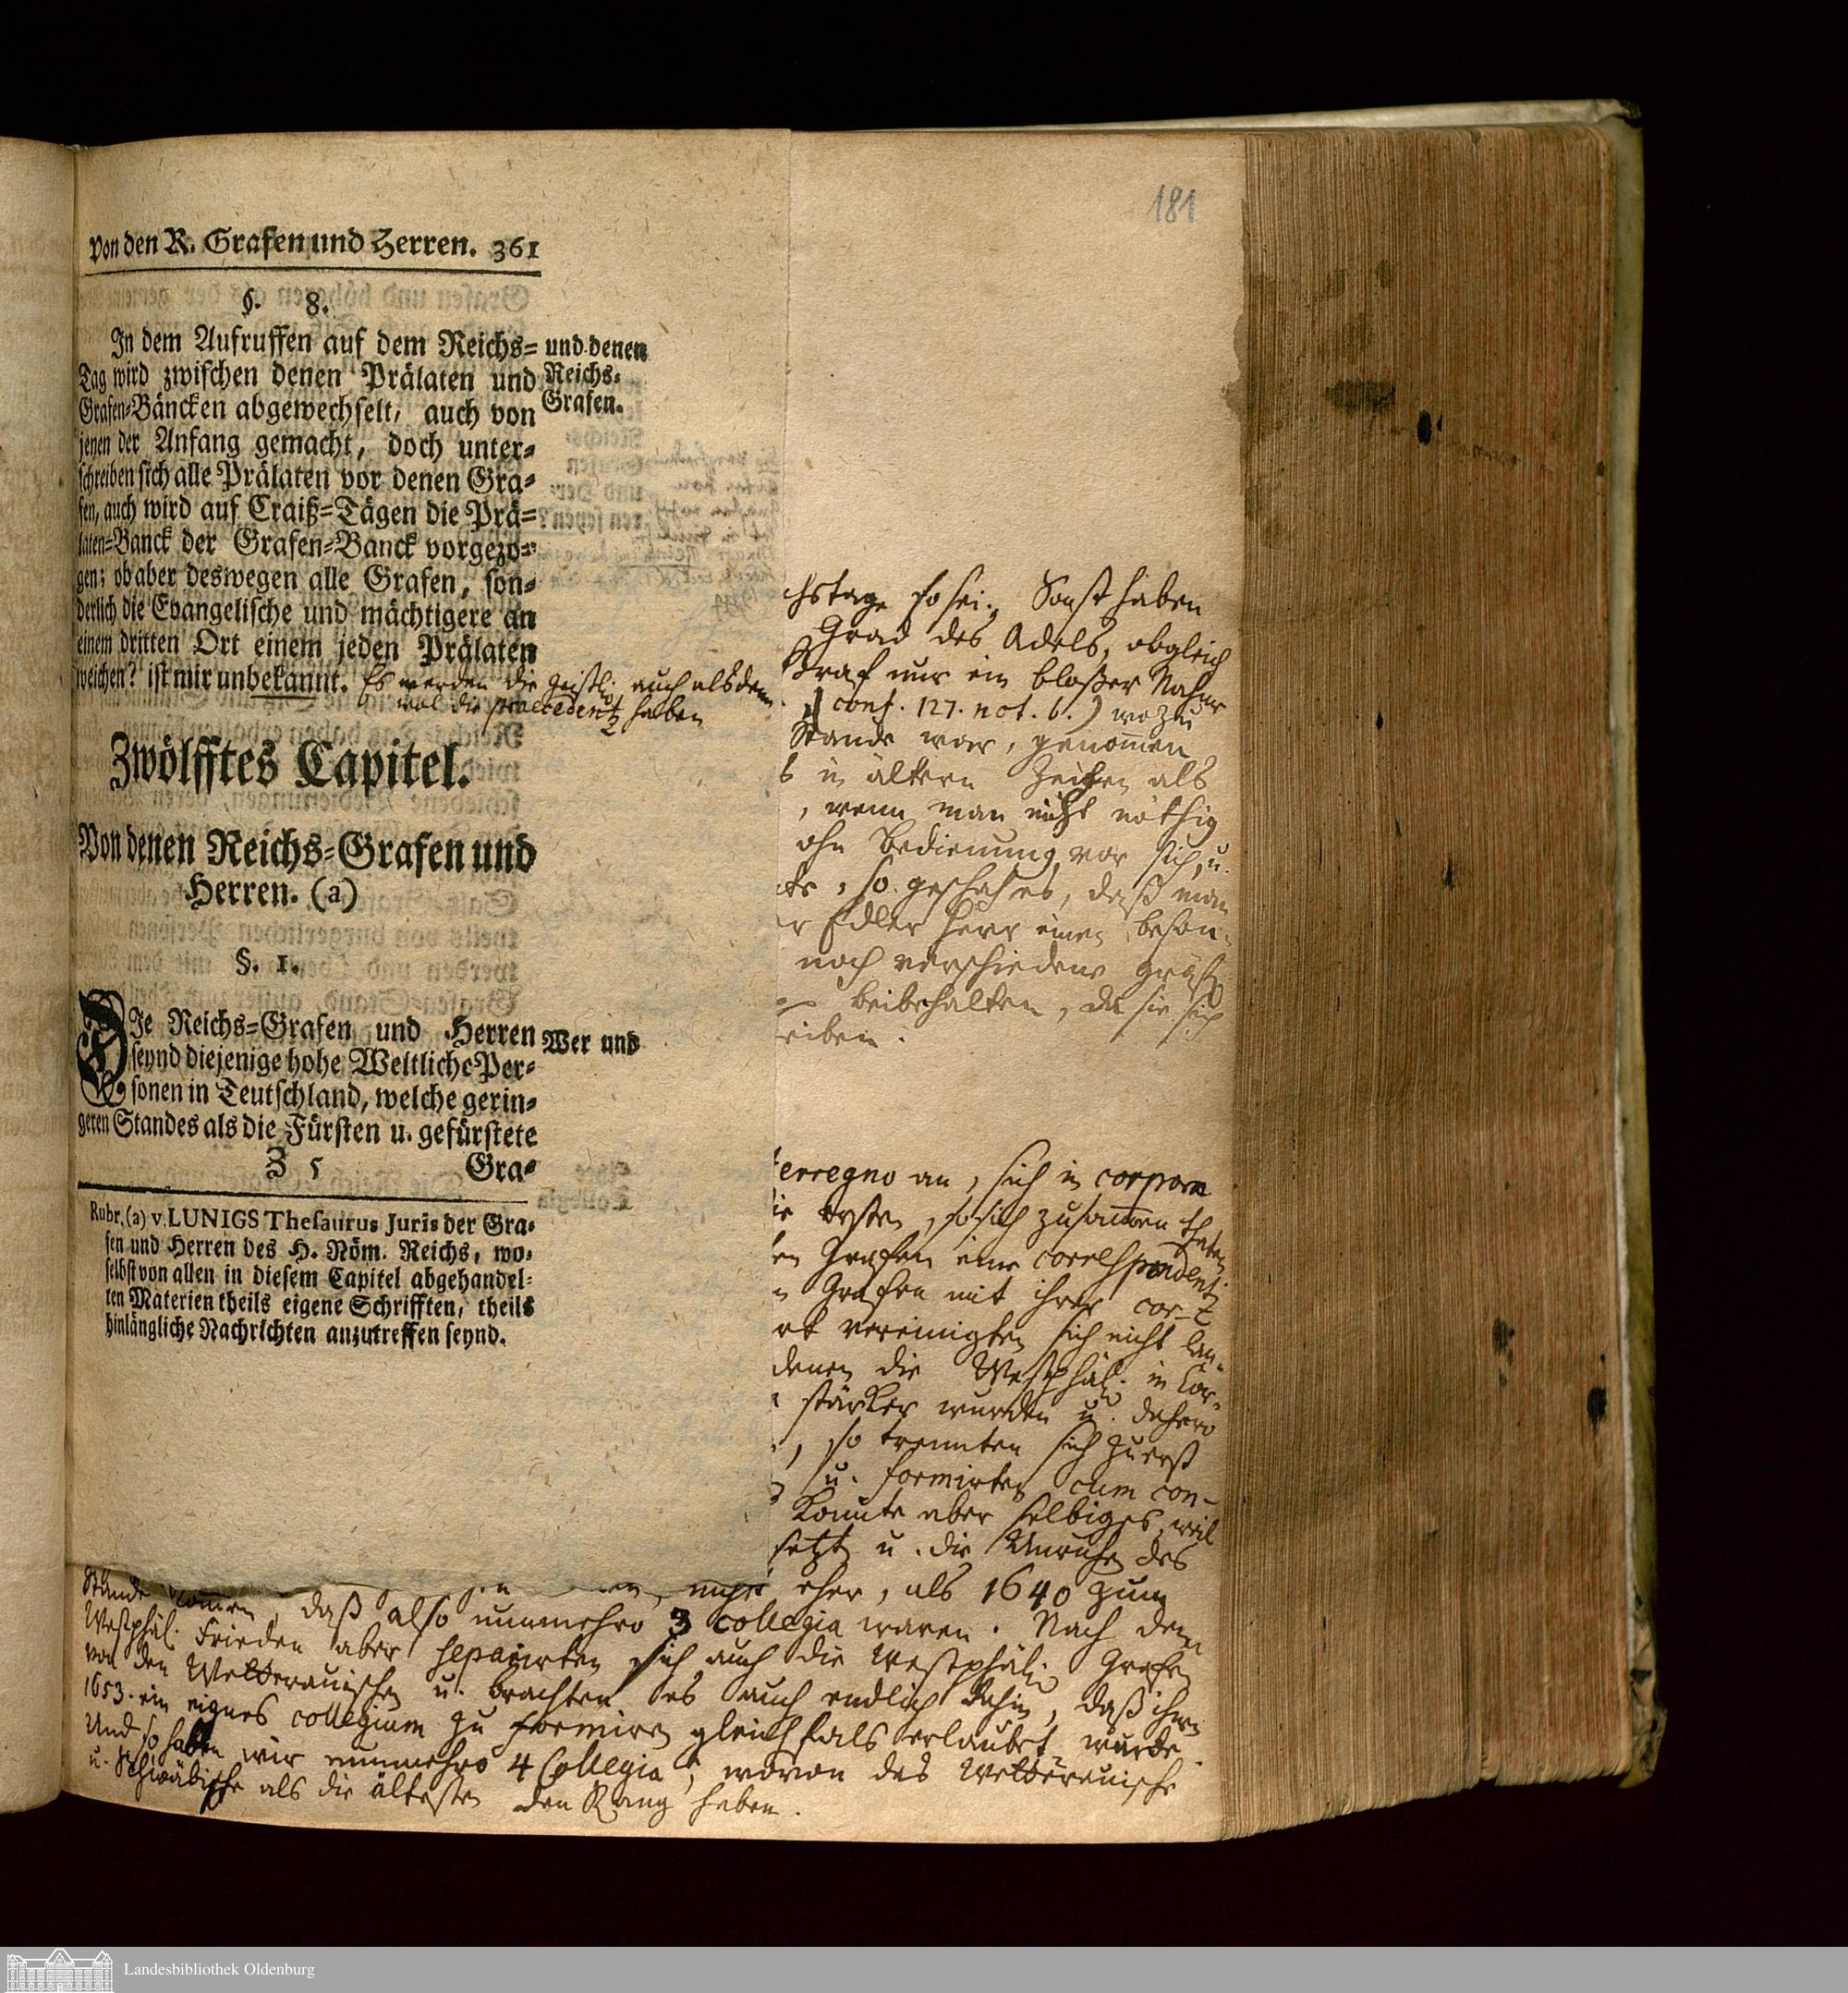 von den R. Grafen und Herren. 361
§. 8.
In dem Aufruffen auf dem Reichs=
Tag wird zwischen denen Prälaten und
Grafen=Bäncken abgewechselt, auch von
jenen der Anfang gemacht, doch unter=
schreiben sich alle Prälaten vor denen Gra=
fen, auch wird auf Craiß=Tägen die Prä=
laten=Banck der Grafen=Banck vorgezo=
gen; ob aber deswegen alle Grafen, son=
derlich die Evangelische und mächtigere an
einem dritten Ort einem jeden Prälaten
weichen? ist mir unbekannt.
und denen
Reichs=
Grafen.
Es werden die geistl. auch alsdenn
wol die praecedentz haben
Zwölfftes Capitel.
Von denen Reichs=Grafen und
Herren. (a)
§. 1.
DIe Reichs=Grafen und Herren
seynd diejenige hohe Weltliche Per=
sonen in Teutschland, welche gerin=
geren Standes als die Fürsten u. gefürstete
Z 5 Gra=
Wer und
Rubr. (a) v. LUNIGS Thesaurus Juris der Gra=
fen und Herren des H. Röm. Reichs, wo=
selbst von allen in diesem Capitel abgehandel=
ten Materien theils eigene Schrifften, theils
hinlängliche Nachrichten anzutreffen seynd.
181
chstage so sei. Sonst haben
Grad des Adels, obgleich
Graf nur ein bloßer Nahme
conf. 127. not. b.) wozu
Stande war, genommen
in ältern Zeiten als
, wenn man nicht nöthig
ohn Bedienung vor sich, u.
so geschah es, daß man
r Edler Herr einen beson-
noch verschiedene gräfl.
beibehalten, da sie sich
reiben.
terregno an, sich in corpora
ie ersten, so sich zusammen thaten
en Grafen eine correspondentz
n Grafen mit ihrer cor-
vereinigten sich nicht lan-
denen die Westphäl. in Cor-
stärker wurden u. dahero
, so trennten sich zuerst
u. formirten cum con-
konnte aber selbiges, weil
setzt u. die Unruhe des
eher, als 1640 zum
Stande kommen, daß also nunmehro 3 collegia waren. Nach dem
Westphäl. Frieden aber separirten sich auch die Westphäl. Grafen
von den Wetterauischen u. brachten es auch endlich dahin, daß ihnen
1653. ein eignes collegium zu formiren gleichfals erlaubt wurde.
Und so haben wir nunmehro 4 Collegia, wovon das Wetterauische
u. Schwäbische als die ältesten den Rang haben.
Landesbibliothek Oldenburg